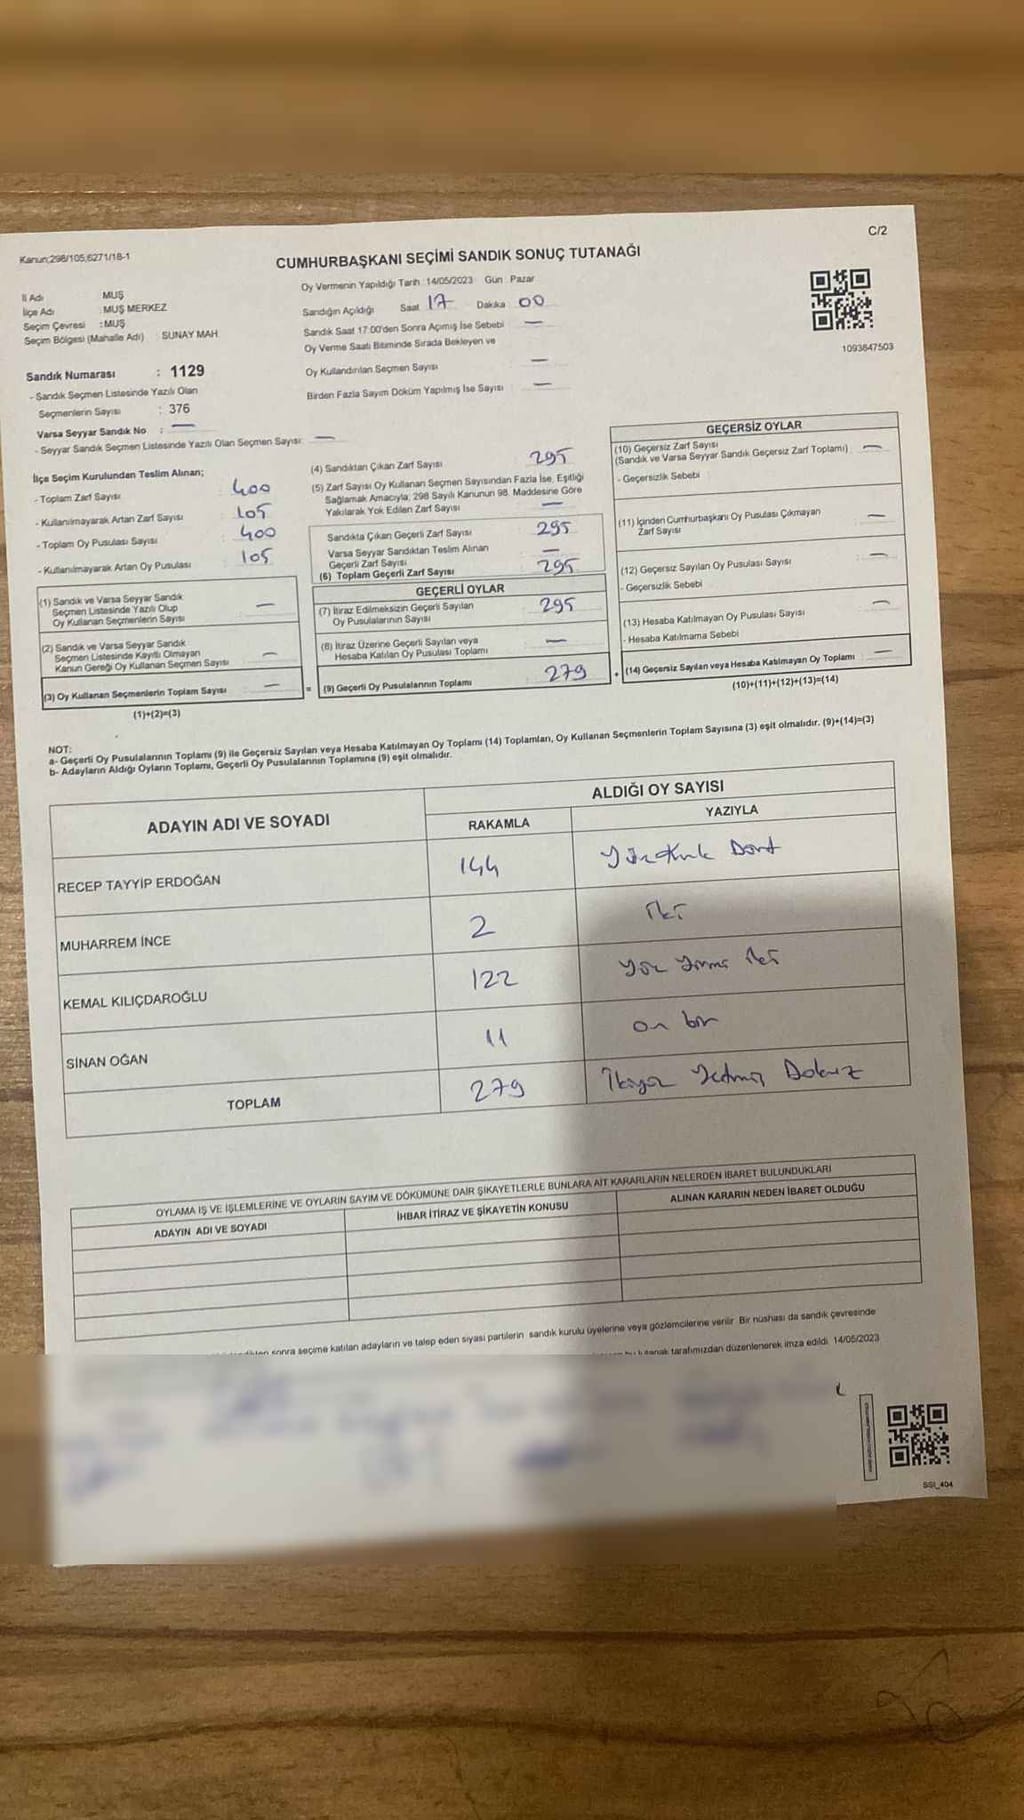 Kanun;298/105,6271/18-1
C/2
CUMHURBAŞKANI SEÇİMİ SANDIK SONUÇ TUTANAĞI
İl Adı : MUŞ
İlçe Adı : MUŞ MERKEZ
Seçim Çevresi : MUŞ
Seçim Bölgesi (Mahalle Adı) : SUNAY MAH.
Sandık Numarası : 1129
- Sandık Seçmen Listesinde Yazılı Olan
Seçmenlerin Sayısı : 376
Varsa Seyyar Sandık No : —
- Seyyar Sandık Seçmen Listesinde Yazılı Olan Seçmen Sayısı: —
Oy Vermenin Yapıldığı Tarih : 14/05/2023 Gün : Pazar
Sandığın Açıldığı Saat 17 Dakika 00
Sandık Saat 17:00'den Sonra Açımış İse Sebebi —
Oy Verme Saati Bitiminde Sırada Bekleyen ve
Oy Kullandırılan Seçmen Sayısı —
Birden Fazla Sayım Döküm Yapılmış İse Sayısı —
1093847503
İlçe Seçim Kurulundan Teslim Alınan;
- Toplam Zarf Sayısı 400
- Kullanılmayarak Artan Zarf Sayısı 105
- Toplam Oy Pusulası Sayısı 400
- Kullanılmayarak Artan Oy Pusulası 105
(1) Sandık ve Varsa Seyyar Sandık
Seçmen Listesinde Yazılı Olup
Oy Kullanan Seçmenlerin Sayısı —
(2) Sandık ve Varsa Seyyar Sandık
Seçmen Listesinde Kayıtlı Olmayan
Kanun Gereği Oy Kullanan Seçmen Sayısı —
(3) Oy Kullanan Seçmenlerin Toplam Sayısı —
(1)+(2)=(3)
(4) Sandıktan Çıkan Zarf Sayısı 295
(5) Zarf Sayısı Oy Kullanan Seçmen Sayısından Fazla İse, Eşitliği
Sağlamak Amacıyla, 298 Sayılı Kanunun 98. Maddesine Göre
Yakılarak Yok Edilen Zarf Sayısı —
Sandıkta Çıkan Geçerli Zarf Sayısı 295
Varsa Seyyar Sandıktan Teslim Alınan
Geçerli Zarf Sayısı —
(6) Toplam Geçerli Zarf Sayısı 295
GEÇERLİ OYLAR
(7) İtiraz Edilmeksizin Geçerli Sayılan
Oy Pusulalarının Sayısı 295
(8) İtiraz Üzerine Geçerli Sayılan veya
Hesaba Katılan Oy Pusulası Toplamı —
= (9) Geçerli Oy Pusulalarının Toplamı 279
GEÇERSİZ OYLAR
(10) Geçersiz Zarf Sayısı
(Sandık ve Varsa Seyyar Sandık Geçersiz Zarf Toplamı) —
- Geçersizlik Sebebi
(11) İçinden Cumhurbaşkanı Oy Pusulası Çıkmayan
Zarf Sayısı —
(12) Geçersiz Sayılan Oy Pusulası Sayısı —
- Geçersizlik Sebebi
(13) Hesaba Katılmayan Oy Pusulası Sayısı —
- Hesaba Katılmama Sebebi
+ (14) Geçersiz Sayılan veya Hesaba Katılmayan Oy Toplamı —
(10)+(11)+(12)+(13)=(14)
NOT:
a- Geçerli Oy Pusulalarının Toplamı (9) ile Geçersiz Sayılan veya Hesaba Katılmayan Oy Toplamı (14) Toplamları, Oy Kullanan Seçmenlerin Toplam Sayısına (3) eşit olmalıdır. (9)+(14)=(3)
b- Adayların Aldığı Oyların Toplamı, Geçerli Oy Pusulalarının Toplamına (9) eşit olmalıdır.
ADAYIN ADI VE SOYADI ALDIĞI OY SAYISI
RAKAMLA YAZIYLA
RECEP TAYYİP ERDOĞAN 144 Yüzkırk Dört
MUHARREM İNCE 2 iki
KEMAL KILIÇDAROĞLU 122 Yüz Yirmi iki
SİNAN OĞAN 11 on bir
TOPLAM 279 İkiyüz Yetmiş Dokuz
OYLAMA İŞ VE İŞLEMLERİNE VE OYLARIN SAYIM VE DÖKÜMÜNE DAİR ŞİKAYETLERLE BUNLARA AİT KARARLARIN NELERDEN İBARET BULUNDUKLARI
ADAYIN ADI VE SOYADI İHBAR İTİRAZ VE ŞİKAYETİN KONUSU ALINAN KARARIN NEDEN İBARET OLDUĞU
sonra seçime katılan adayların ve talep eden siyasi partilerin sandık kurulu üyelerine veya gözlemcilerine verilir. Bir nüshası da sandık çevresinde
tutanak tarafımızdan düzenlenerek imza edildi. 14/05/2023
SSI_404